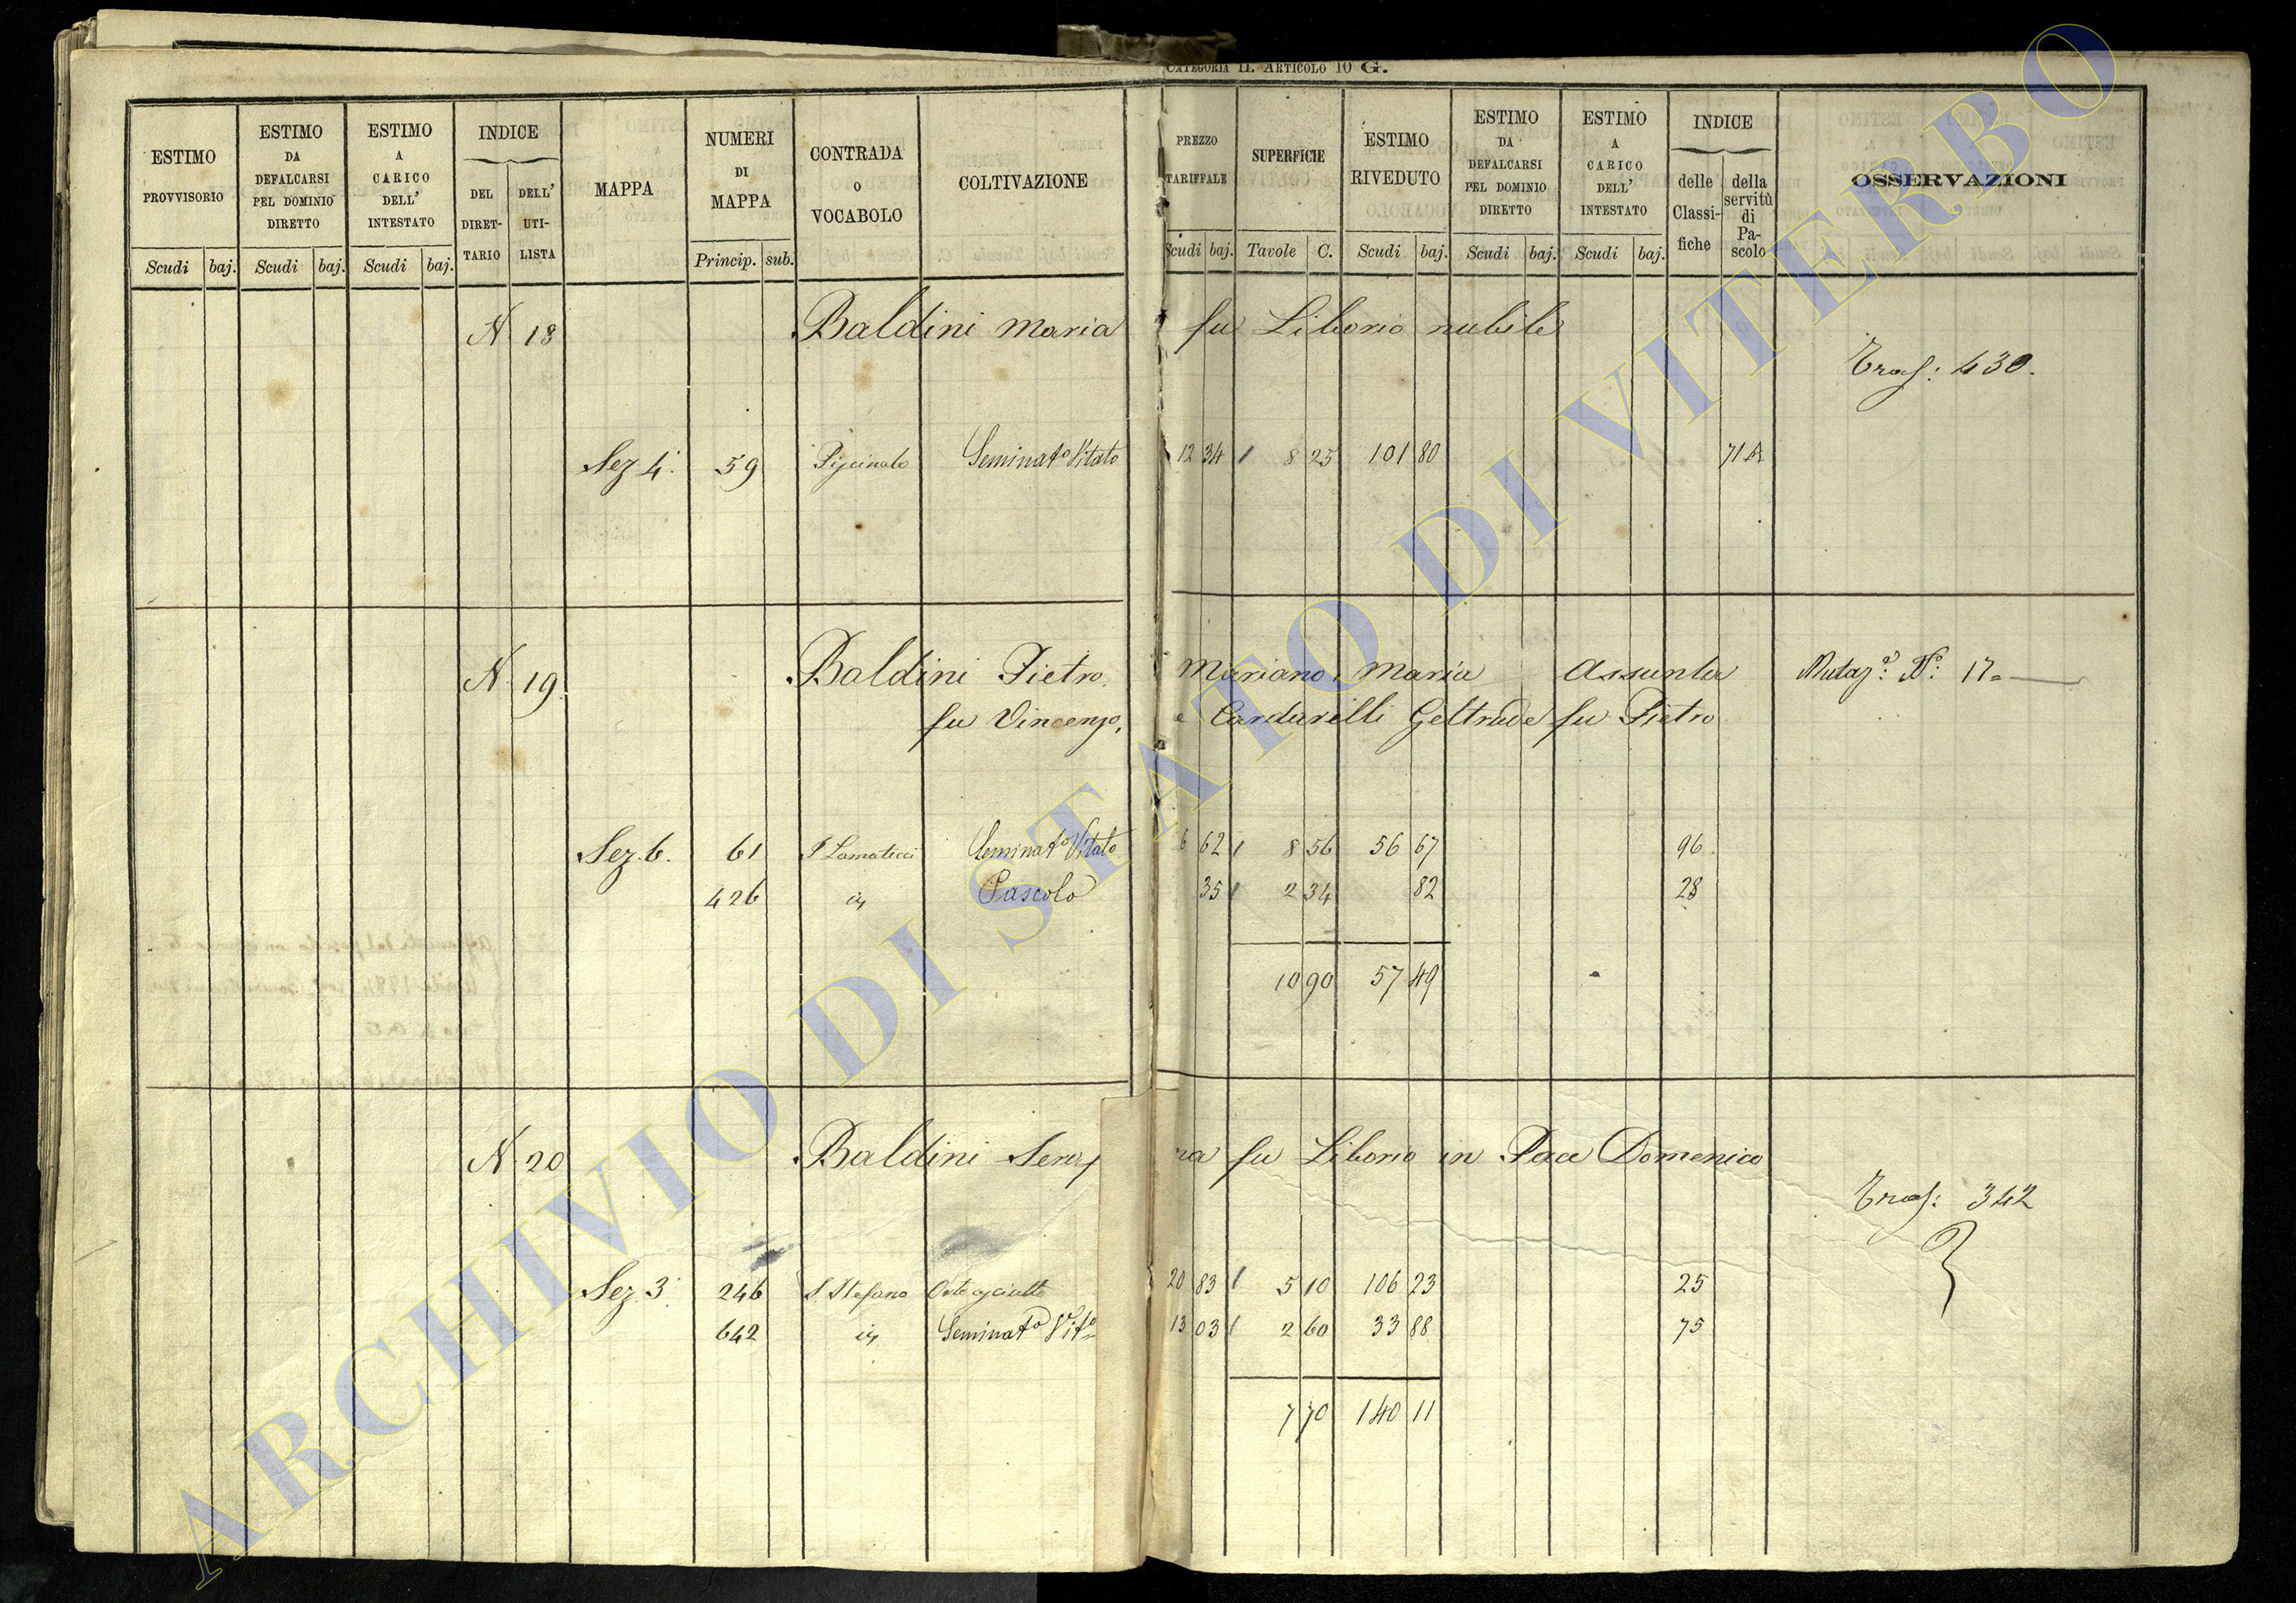 CATEGORIA II. ARTICOLO 10 G.
ESTIMO PROVVISORIO
ESTIMO DA DEFALCARSI PEL DOMINIO DIRETTO
ESTIMO A CARICO DELL' INTESTATO
INDICE
DEL DIRET-TARIO
DELL' UTI-LISTA
MAPPA
NUMERI DI MAPPA
CONTRADA O VOCABOLO
COLTIVAZIONE
PREZZO TARIFFALE
SUPERFICIE
ESTIMO RIVEDUTO
ESTIMO DA DEFALCARSI PEL DOMINIO DIRETTO
ESTIMO A CARICO DELL' INTESTATO
INDICE
delle Classi-fiche
della servitù di Pa-scolo
OSSERVAZIONI
Scudi baj. Scudi baj. Scudi baj. Princip. sub. Scudi baj. Tavole C. Scudi baj. Scudi baj. Scudi baj.
N. 18 Baldini Maria fu Liborio nubile
Tras: 430.
Sez 4. 59 Seminato Vitato 12 34 8 25 101 80 71 A
N. 19. Baldini Pietro, Mariano, Maria Assunta Mutaz: N°. 17
fu Vincenzo, e Cardarelli Geltrude fu Pietro
Sez. 6. 61 Seminato Vitato 6 62 8 56 56 67 96
426 Pascolo 35 2 34 82 28
10 90 57 49
N. 20 Baldini Seraf ra fu Liborio in Pace Domenico
Tras: 342
Sez. 3. 246 S. Stefano 20 83 5 10 106 23 25
642 Seminato Vito 13 03 2 60 33 88 75
7 70 140 11
ARCHIVIO DI STATO DI VITERBO